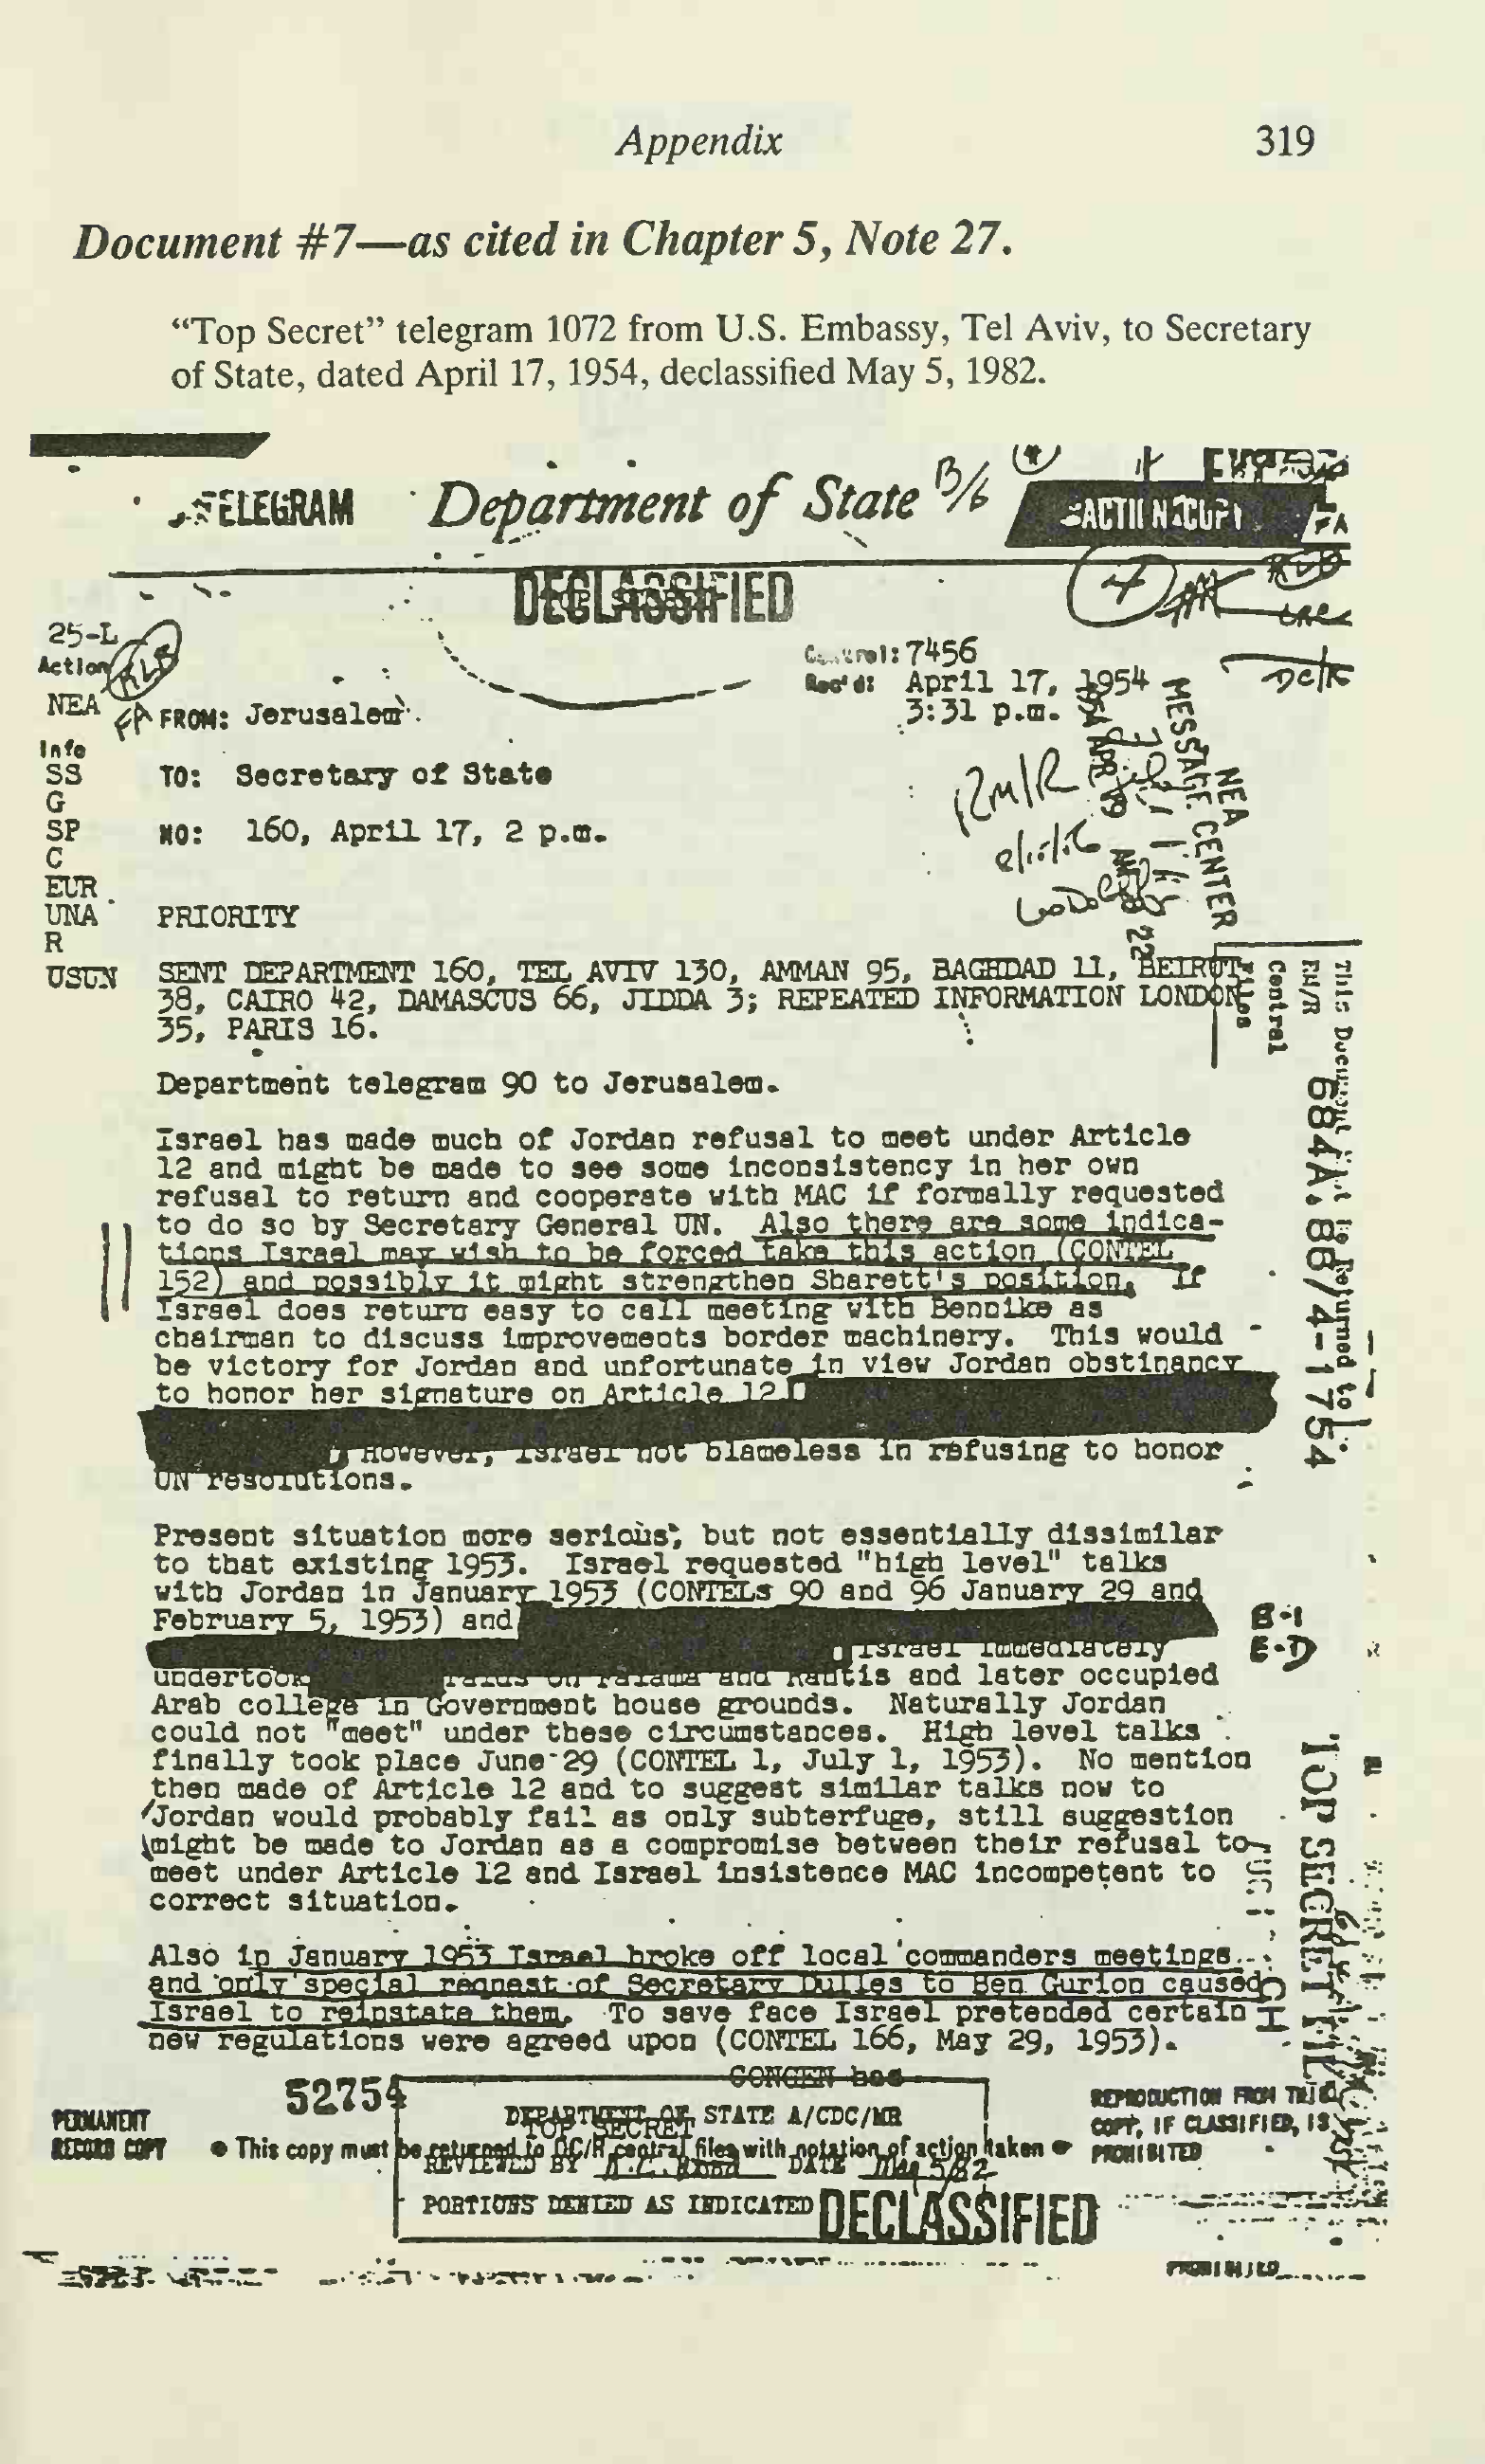 Appendix 319
Document #7—as cited in Chapter 5, Note 27.
"Top Secret" telegram 1072 from U.S. Embassy, Tel Aviv, to Secretary
of State, dated April 17, 1954, declassified May 5, 1982.
TELEGRAM Department of State B/6
DECLASSIFIED
25-L
Action
NEA
Info
SS
G
SP
C
EUR
UNA
R
USUN
Control: 7456
Rec'd: April 17, 1954
3:31 p.m.
FROM: Jerusalem
TO: Secretary of State
NO: 160, April 17, 2 p.m.
RM/R
NEA
MESSAGE CENTER
PRIORITY
SENT DEPARTMENT 160, TEL AVIV 130, AMMAN 95, BAGHDAD 11, BEIRUT
38, CAIRO 42, DAMASCUS 66, JIDDA 3; REPEATED INFORMATION LONDON
35, PARIS 16.
Department telegram 90 to Jerusalem.
Israel has made much of Jordan refusal to meet under Article
12 and might be made to see some inconsistency in her own
refusal to return and cooperate with MAC if formally requested
to do so by Secretary General UN. Also there are some indica-
tions Israel may wish to be forced take this action (CONTEL
152) and possibly it might strengthen Sharett's position. If
Israel does return easy to call meeting with Bennike as
chairman to discuss improvements border machinery. This would
be victory for Jordan and unfortunate in view Jordan obstinancy
to honor her signature on Article 12.
However, Israel not blameless in refusing to honor
UN resolutions.
Present situation more serious, but not essentially dissimilar
to that existing 1953. Israel requested "high level" talks
with Jordan in January 1953 (CONTELs 90 and 96 January 29 and
February 5, 1953) and
Israel immediately
undertook raids on Falama and Rantis and later occupied
Arab college in Government house grounds. Naturally Jordan
could not "meet" under these circumstances. High level talks
finally took place June 29 (CONTEL 1, July 1, 1953). No mention
then made of Article 12 and to suggest similar talks now to
Jordan would probably fail as only subterfuge, still suggestion
might be made to Jordan as a compromise between their refusal to
meet under Article 12 and Israel insistence MAC incompetent to
correct situation.
Also in January 1953 Israel broke off local commanders meetings
and only special request of Secretary Dulles to Ben Gurion caused
Israel to reinstate them. To save face Israel pretended certain
new regulations were agreed upon (CONTEL 166, May 29, 1953).
CONGEN has
This Document Must Be Returned to
RM/R Central Files
684A.86/4-1754
TOP SECRET FILE
52754
PERMANENT
RECORD COPY
DEPARTMENT OF STATE A/CDC/MR
TOP SECRET
This copy must be returned to DC/R central files with notation of action taken
REVIEWED BY DATE May 5/82
PORTIONS DENIED AS INDICATED
DECLASSIFIED
REPRODUCTION FROM THIS
COPY, IF CLASSIFIED, IS
PROHIBITED